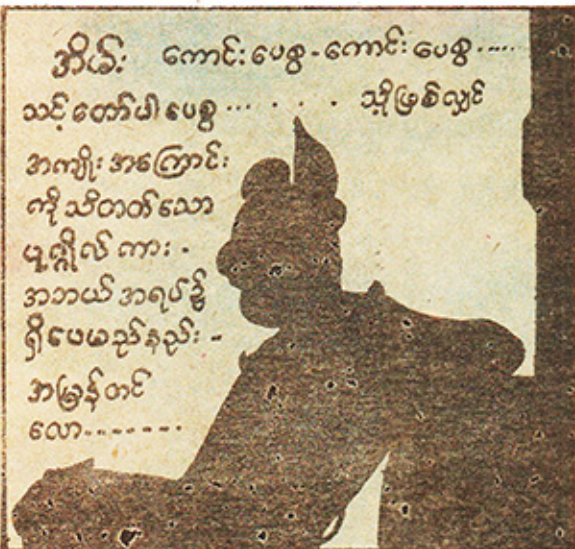 အိမ်း ကောင်းပေစွ - ကောင်းပေစွ .....
သင့်တော်ပါပေစွ ... . . . သို့ဖြစ်လျှင်
အကျိုးအကြောင်း
ကိုသိတတ်သော
ပုဂ္ဂိုလ်ကား -
အဘယ်အရပ်၌
ရှိပေမည်နည်း -
အမြန်တင်
လော--------